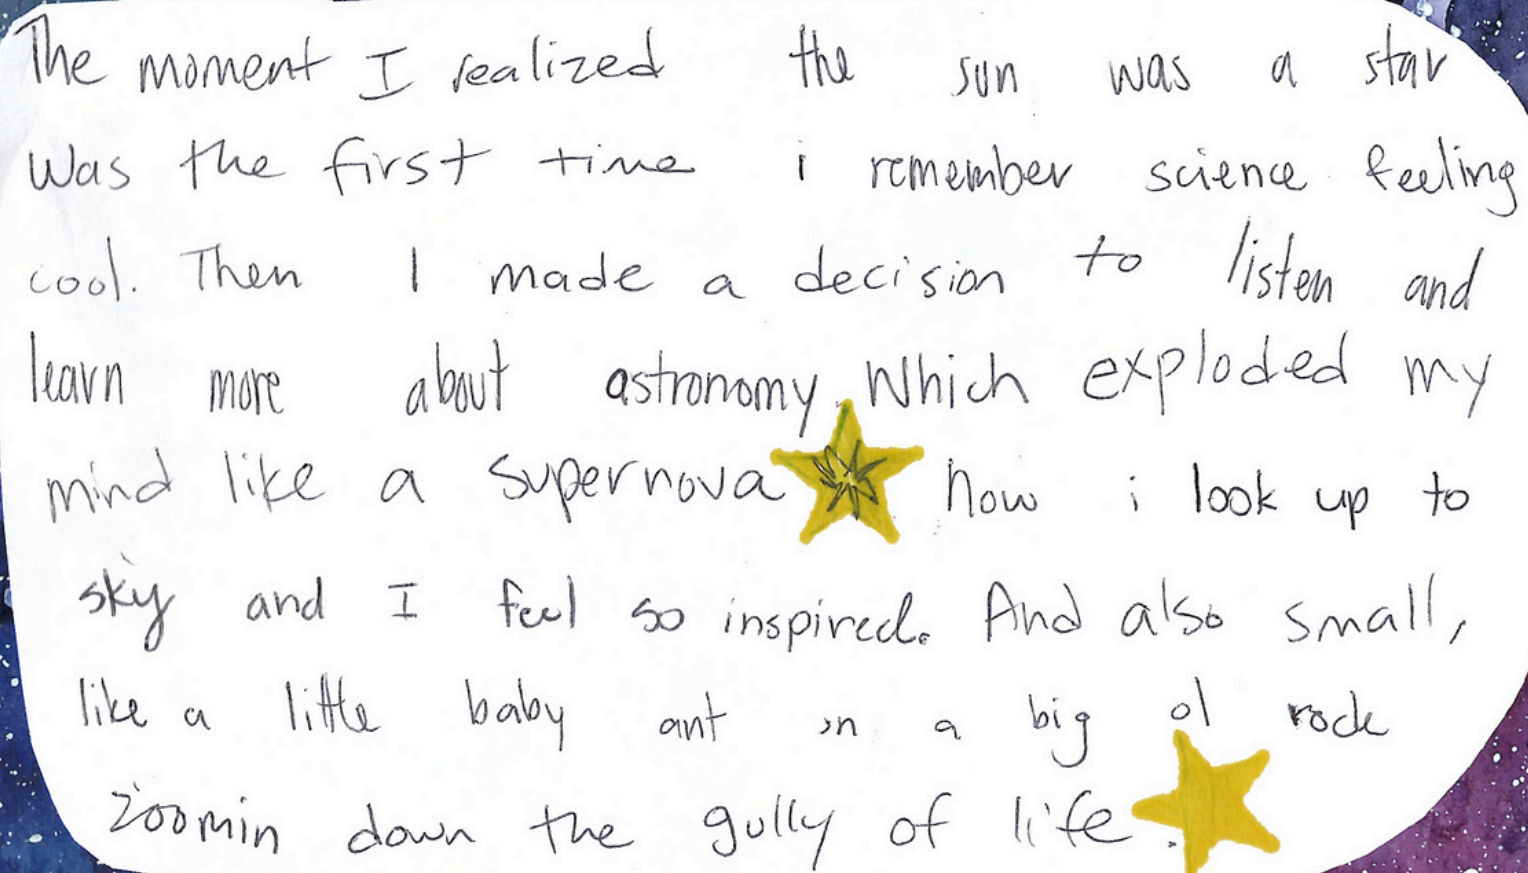 The moment I realized the sun was a star
was the first time i remember science feeling
cool. Then I made a decision to listen and
learn more about astronomy. Which exploded my
mind like a supernova now i look up to
sky and I feel so inspired. And also small,
like a little baby ant on a big ol rock
zoomin down the gully of life.